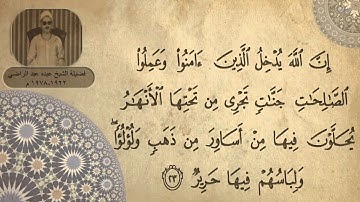 فضيلة الشيخ عبده عبد الراضي
١٩٢٢-١٩٧٨ م
إِنَّ ٱللَّهَ يُدْخِلُ ٱلَّذِينَ ءَامَنُوا۟ وَعَمِلُوا۟
ٱلصَّٰلِحَٰتِ جَنَّٰتٍ تَجْرِى مِن تَحْتِهَا ٱلْأَنْهَٰرُ
يُحَلَّوْنَ فِيهَا مِنْ أَسَاوِرَ مِن ذَهَبٍ وَلُؤْلُؤًا ۖ
وَلِبَاسُهُمْ فِيهَا حَرِيرٌ ﴿٢٣﴾